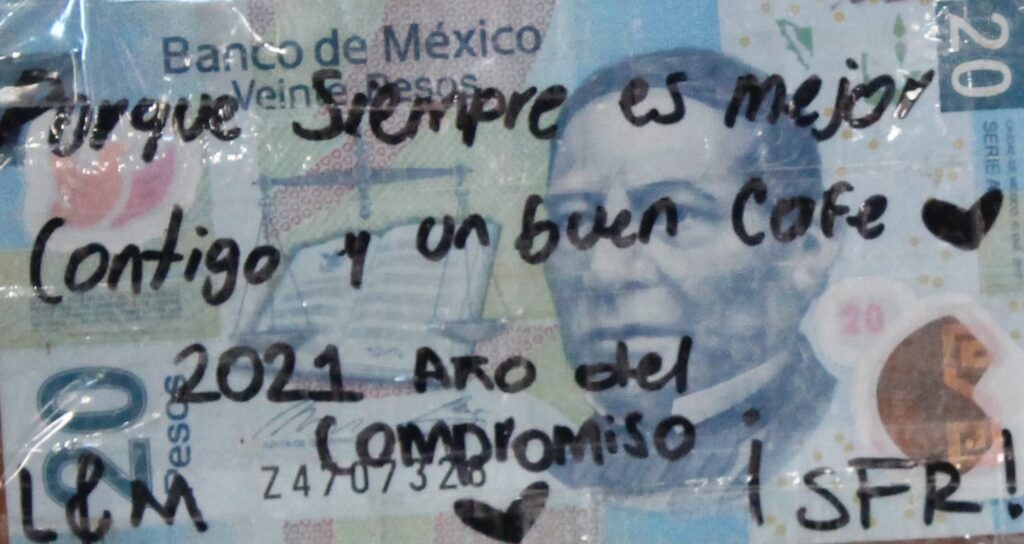 Banco de México
Veinte Pesos
20
Porque Siempre es mejor
SERIE
Contigo y un buen Cafe
20
2021 Año del
20
Pesos
Compromiso
Z4707328
L&M
¡SFR!